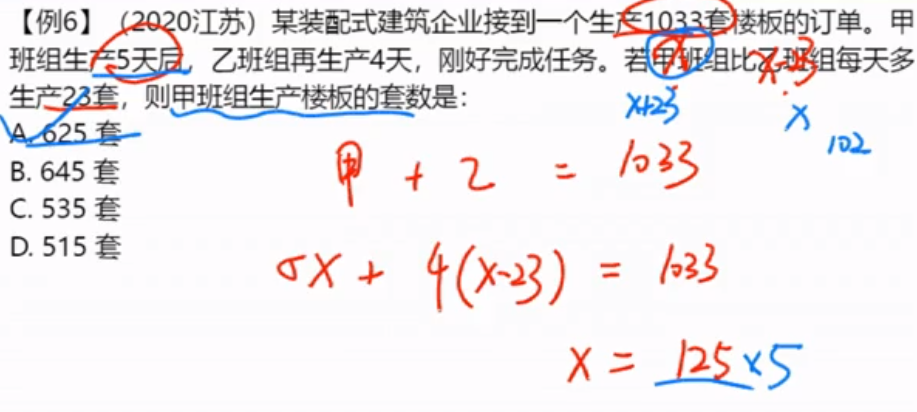 【例6】（2020江苏）某装配式建筑企业接到一个生产1033套楼板的订单。甲
班组生产5天后，乙班组再生产4天，刚好完成任务。若甲班组比乙班组每天多
生产23套，则甲班组生产楼板的套数是：
x
x-23
x+23
x
102
A. 625 套
B. 645 套
C. 535 套
D. 515 套
甲 + 乙 = 1033
5x + 4(x-23) = 1033
x = 125×5